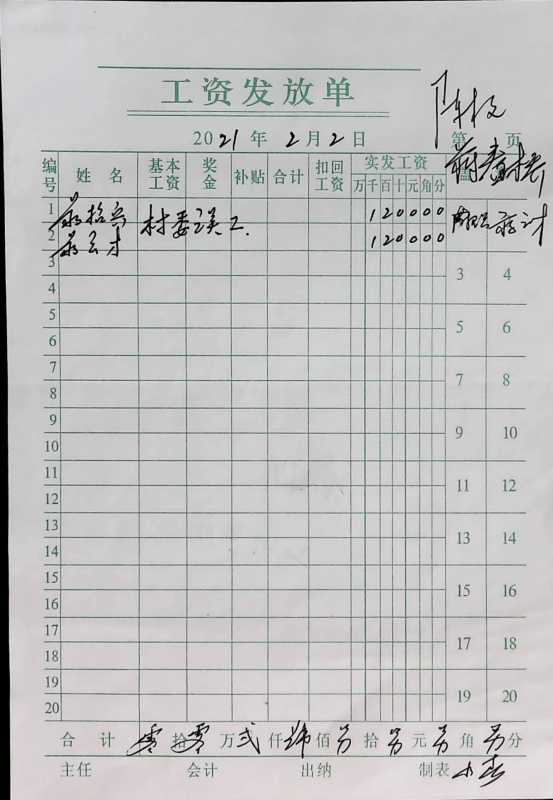 工资发放单
2021年2月2日 第 页
编号 姓名 基本工资 奖金 补贴 合计 扣回工资 实发工资
万 千 百 十 元 角 分
1 村委误工. 120000
2 120000
3 3 4
4
5 5 6
6
7 7 8
8
9 9 10
10
11 11 12
12
13 13 14
14
15 15 16
16
17 17 18
18
19 19 20
20
合计 零拾零万弍仟肆佰另拾另元另角另分
主任 会计 出纳 制表